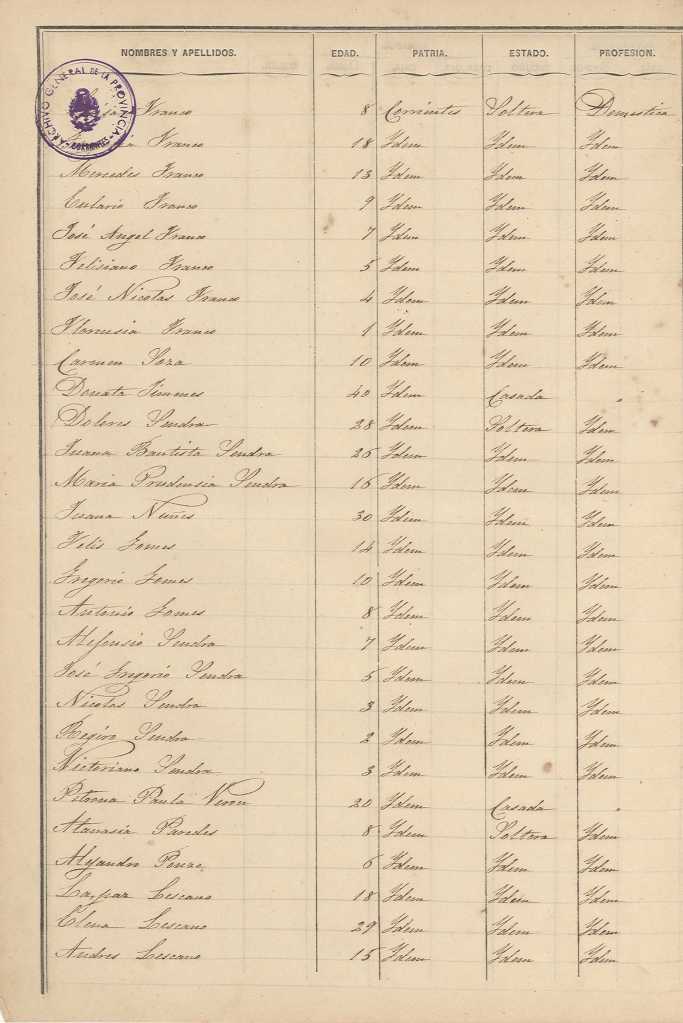 NOMBRES Y APELLIDOS. EDAD. PATRIA. ESTADO. PROFESION.
ARCHIVO GENERAL DE LA PROVINCIA - CORRIENTES -
Franco 8 Corrientes Soltera Domestica
Franco 18 Ydem Ydem Ydem
Mercedes Franco 13 Ydem Ydem Ydem
Eulario Franco 9 Ydem Ydem Ydem
José Angel Franco 7 Ydem Ydem Ydem
Felisiano Franco 5 Ydem Ydem Ydem
José Nicolas Franco 4 Ydem Ydem Ydem
Franco 1 Ydem Ydem Ydem
Carmen Soza 10 Ydem Ydem Ydem
Donata Jimenes 40 Ydem Casada "
Dolores Sendra 28 Ydem Soltera Ydem
Juana Bautista Sendra 26 Ydem Ydem Ydem
Maria Prudensia Sendra 16 Ydem Ydem Ydem
Juana Nuñes 30 Ydem Ydem Ydem
Felis Gomes 14 Ydem Ydem Ydem
Gregorio Gomes 10 Ydem Ydem Ydem
Antonio Gomes 8 Ydem Ydem Ydem
Alefonsio Sendra 7 Ydem Ydem Ydem
José Gregorio Sendra 5 Ydem Ydem Ydem
Nicolas Sendra 3 Ydem Ydem Ydem
Sendra 2 Ydem Ydem Ydem
Victoriano Sendra 3 Ydem Ydem Ydem
Petrona Paula 20 Ydem Casada "
Atanasia Paredes 8 Ydem Soltera Ydem
Alejandro 6 Ydem Ydem Ydem
Gaspar Lescano 18 Ydem Ydem Ydem
Elena Lescano 29 Ydem Ydem Ydem
Andres Lescano 15 Ydem Ydem Ydem